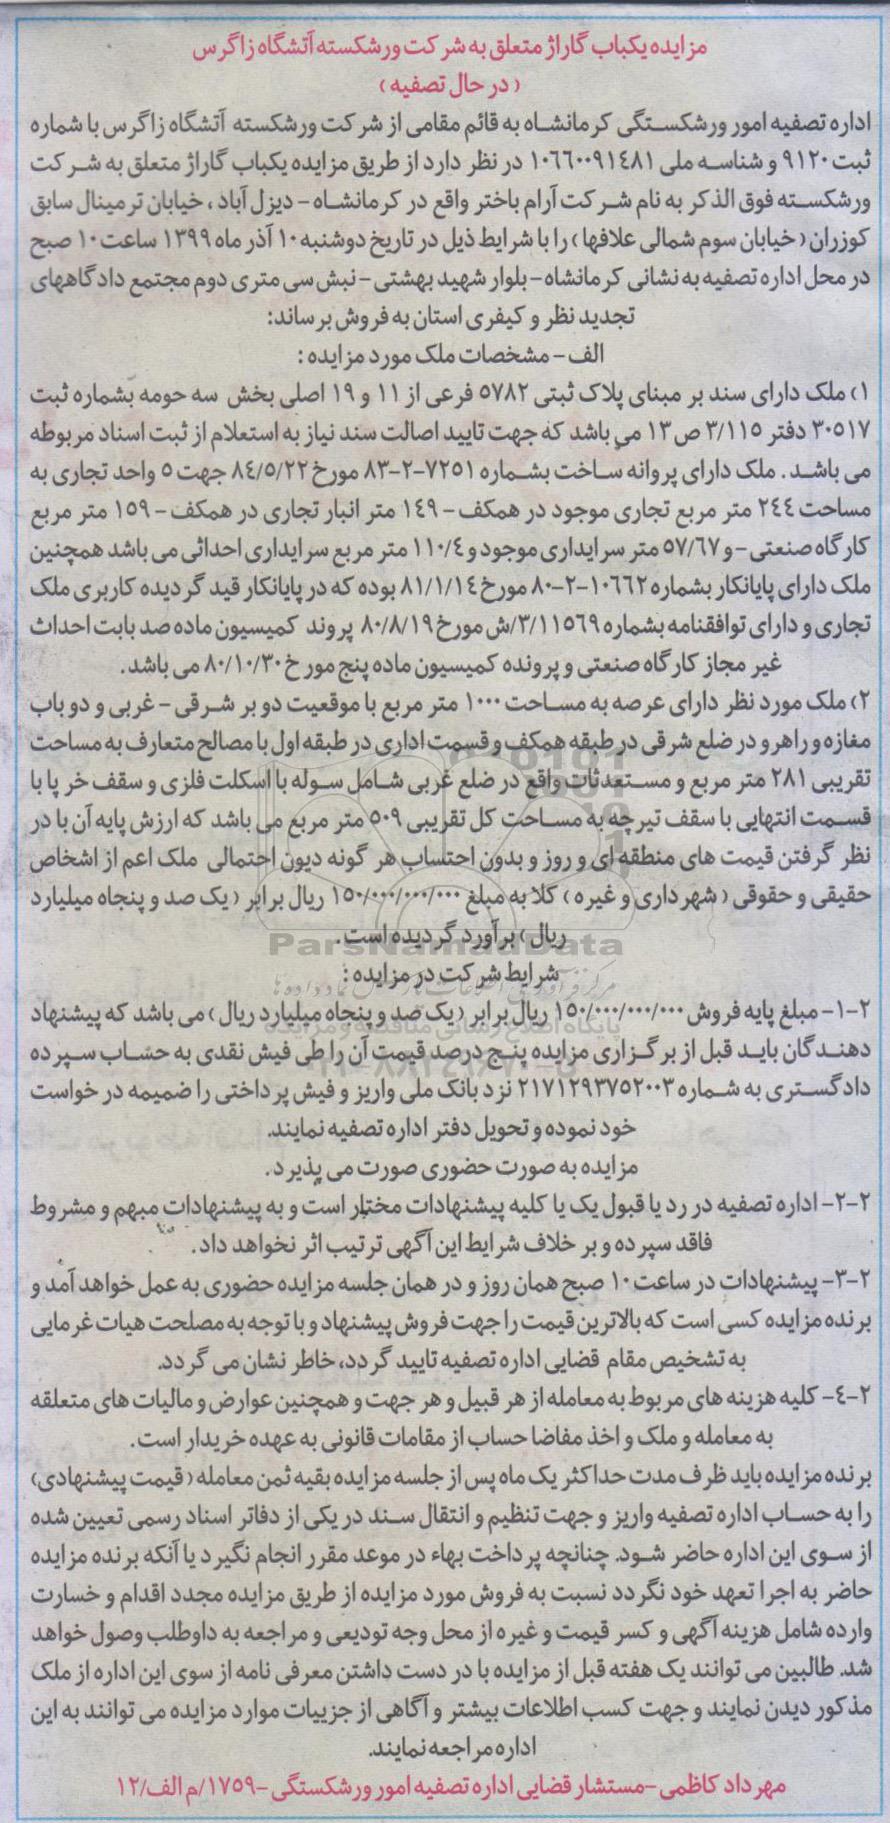 مزایده یکباب گاراژ متعلق به شرکت ورشکسته آتشگاه زاگرس
( در حال تصفیه )
اداره تصفیه امور ورشکستگی کرمانشاه به قائم مقامی از شرکت ورشکسته آتشگاه زاگرس با شماره
ثبت ۹۱۲۰ و شناسه ملی ۱۰۶۶۰۰۹۱۴۸۱ در نظر دارد از طریق مزایده یکباب گاراژ متعلق به شرکت
ورشکسته فوق الذکر به نام شرکت آرام باختر واقع در کرمانشاه - دیزل آباد ، خیابان ترمینال سابق
کوزران ( خیابان سوم شمالی علافها ) را با شرایط ذیل در تاریخ دوشنبه ۱۰ آذر ماه ۱۳۹۹ ساعت ۱۰ صبح
در محل اداره تصفیه به نشانی کرمانشاه - بلوار شهید بهشتی - نبش سی متری دوم مجتمع دادگاههای
تجدید نظر و کیفری استان به فروش برساند:
الف - مشخصات ملک مورد مزایده :
۱) ملک دارای سند بر مبنای پلاک ثبتی ۵۷۸۲ فرعی از ۱۱ و ۱۹ اصلی بخش سه حومه بشماره ثبت
۳۰۵۱۷ دفتر ۳/۱۱۵ ص ۱۳ می باشد که جهت تایید اصالت سند نیاز به استعلام از ثبت اسناد مربوطه
می باشد . ملک دارای پروانه ساخت بشماره ۷۲۵۱-۲-۸۳ مورخ ۸۴/۵/۲۲ جهت ۵ واحد تجاری به
مساحت ۲۴۴ متر مربع تجاری موجود در همکف - ۱۴۹ متر انبار تجاری در همکف - ۱۵۹ متر مربع
کارگاه صنعتی - و ۵۷/۶۷ متر سرایداری موجود و ۱۱۰/۴ متر مربع سرایداری احداثی می باشد همچنین
ملک دارای پایانکار بشماره ۱۰۶۶۲-۲-۸۰ مورخ ۸۱/۱/۱۴ بوده که در پایانکار قید گردیده کاربری ملک
تجاری و دارای توافقنامه بشماره ۳/۱۱۵۶۹/ش مورخ ۸۰/۸/۱۹ پروند کمیسیون ماده صد بابت احداث
غیر مجاز کارگاه صنعتی و پرونده کمیسیون ماده پنج مورخ ۸۰/۱۰/۳۰ می باشد.
۲) ملک مورد نظر دارای عرصه به مساحت ۱۰۰۰ متر مربع با موقعیت دو بر شرقی - غربی و دو باب
مغازه و راهرو در ضلع شرقی در طبقه همکف و قسمت اداری در طبقه اول با مصالح متعارف به مساحت
تقریبی ۲۸۱ متر مربع و مستعدثات واقع در ضلع غربی شامل سوله با اسکلت فلزی و سقف خرپا با
قسمت انتهایی با سقف تیرچه به مساحت کل تقریبی ۵۰۹ متر مربع می باشد که ارزش پایه آن با در
نظر گرفتن قیمت های منطقه ای و روز و بدون احتساب هر گونه دیون احتمالی ملک اعم از اشخاص
حقیقی و حقوقی ( شهرداری و غیره ) کلا به مبلغ ۱۵۰/۰۰۰/۰۰۰/۰۰۰ ریال برابر ( یک صد و پنجاه میلیارد
ریال ) برآورد گردیده است .
ParsNamadData
شرایط شرکت در مزایده :
۲-۱- مبلغ پایه فروش ۱۵۰/۰۰۰/۰۰۰/۰۰۰ ریال برابر ( یک صد و پنجاه میلیارد ریال ) می باشد که پیشنهاد
دهندگان باید قبل از برگزاری مزایده پنج درصد قیمت آن را طی فیش نقدی به حساب سپرده
دادگستری به شماره ۲۱۷۱۲۹۳۷۵۲۰۰۳ نزد بانک ملی واریز و فیش پرداختی را ضمیمه درخواست
خود نموده و تحویل دفتر اداره تصفیه نمایند.
مزایده به صورت حضوری صورت می پذیرد .
۲-۲- اداره تصفیه در رد یا قبول یک یا کلیه پیشنهادات مختار است و به پیشنهادات مبهم و مشروط
فاقد سپرده و بر خلاف شرایط این آگهی ترتیب اثر نخواهد داد .
۲-۳- پیشنهادات در ساعت ۱۰ صبح همان روز و در همان جلسه مزایده حضوری به عمل خواهد آمد و
برنده مزایده کسی است که بالاترین قیمت را جهت فروش پیشنهاد و با توجه به مصلحت هیات غرمایی
به تشخیص مقام قضایی اداره تصفیه تایید گردد، خاطر نشان می گردد.
۲-۴- کلیه هزینه های مربوط به معامله از هر قبیل و هر جهت و همچنین عوارض و مالیات های متعلقه
به معامله و ملک و اخذ مفاضا حساب از مقامات قانونی به عهده خریدار است .
برنده مزایده باید ظرف مدت حداکثر یک ماه پس از جلسه مزایده بقیه ثمن معامله ( قیمت پیشنهادی)
را به حساب اداره تصفیه واریز و جهت تنظیم و انتقال سند در یکی از دفاتر اسناد رسمی تعیین شده
از سوی این اداره حاضر شود. چنانچه پرداخت بهاء در موعد مقرر انجام نگیرد یا آنکه برنده مزایده
حاضر به اجرا تعهد خود نگردد نسبت به فروش مورد مزایده از طریق مزایده مجدد اقدام و خسارت
وارده شامل هزینه آگهی و کسر قیمت و غیره از محل وجه تودیعی و مراجعه به داوطلب وصول خواهد
شد. طالبین می توانند یک هفته قبل از مزایده با در دست داشتن معرفی نامه از سوی این اداره از ملک
مذکور دیدن نمایند و جهت کسب اطلاعات بیشتر و آگاهی از جزییات موارد مزایده می توانند به این
اداره مراجعه نمایند.
مهرداد کاظمی - مستشار قضایی اداره تصفیه امور ورشکستگی - ۱۷۵۹/م الف/۱۲